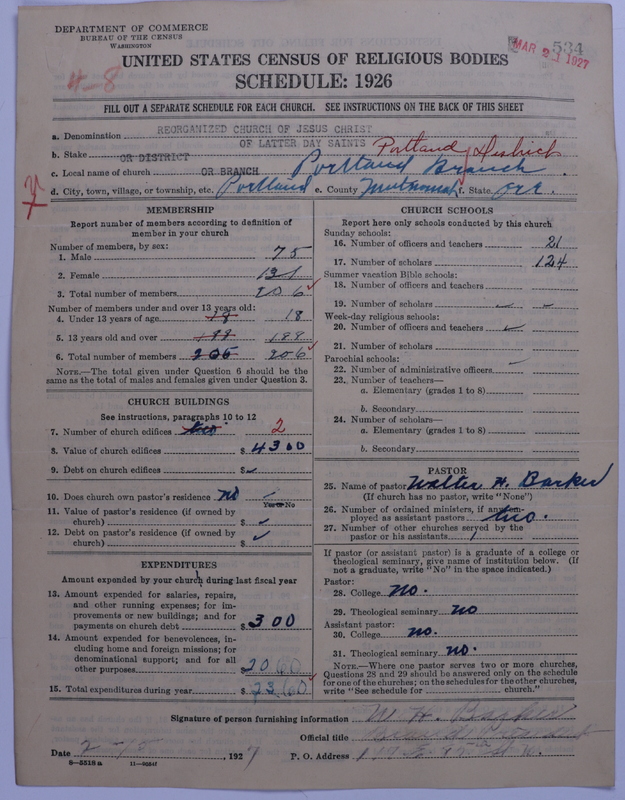 DEPARTMENT OF COMMERCE
BUREAU OF THE CENSUS
WASHINGTON
534
MAR 21 1927
UNITED STATES CENSUS OF RELIGIOUS BODIES
4-8
SCHEDULE: 1926
FILL OUT A SEPARATE SCHEDULE FOR EACH CHURCH. SEE INSTRUCTIONS ON THE BACK OF THIS SHEET
a. Denomination REORGANIZED CHURCH OF JESUS CHRIST
OF LATTER DAY SAINTS
b. Stake OR DISTRICT Portland District
c. Local name of church OR BRANCH Portland Branch
d. City, town, village, or township, etc. Portland e. County Multnomah f. State Ore.
MEMBERSHIP
Report number of members according to definition of
member in your church
Number of members, by sex:
1. Male 75
2. Female 131
3. Total number of members 206
Number of members under and over 13 years old:
4. Under 13 years of age 18 18
5. 13 years old and over 188 188
6. Total number of members 206 206
NOTE.—The total given under Question 6 should be the
same as the total of males and females given under Question 3.
CHURCH BUILDINGS
See instructions, paragraphs 10 to 12
7. Number of church edifices two 2
8. Value of church edifices $ 4300
9. Debt on church edifices $
10. Does church own pastor's residence no
Yes or No
11. Value of pastor's residence (if owned by
church) $
12. Debt on pastor's residence (if owned by
church) $
EXPENDITURES
Amount expended by your church during last fiscal year
13. Amount expended for salaries, repairs,
and other running expenses; for im-
provements or new buildings; and for
payments on church debt $ 300
14. Amount expended for benevolences, in-
cluding home and foreign missions; for
denominational support; and for all
other purposes
15. Total expenditures during year $
CHURCH SCHOOLS
Report here only schools conducted by this church
Sunday schools:
16. Number of officers and teachers 21
17. Number of scholars 124
Summer vacation Bible schools:
18. Number of officers and teachers
19. Number of scholars
Week-day religious schools:
20. Number of officers and teachers
21. Number of scholars
Parochial schools:
22. Number of administrative officers
23. Number of teachers—
a. Elementary (grades 1 to 8)
b. Secondary
24. Number of scholars—
a. Elementary (grades 1 to 8)
b. Secondary
PASTOR
25. Name of pastor Walter H. Barker
(If church has no pastor, write "None")
26. Number of ordained ministers, if any, em-
ployed as assistant pastors two.
27. Number of other churches served by the
pastor or his assistants
If pastor (or assistant pastor) is a graduate of a college or
theological seminary, give name of institution below. (If
not a graduate, write "No" in the space indicated.)
Pastor:
28. College no.
29. Theological seminary no
Assistant pastor:
30. College no.
31. Theological seminary no.
NOTE.—Where one pastor serves two or more churches,
Questions 28 and 29 should be answered only on the schedule
for one of the churches; on the schedules for the other churches,
write "See schedule for church."
Signature of person furnishing information W. H. Barker
Official title
Date , 1927 P. O. Address
8-5518 a